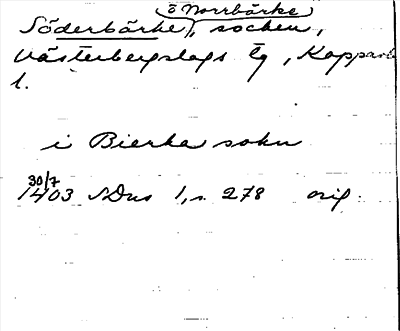 o Norrbärke
Söderbärke, socken,
Västerbergslags tg, Kopparb.
l.
i Bierka sokn
30/7
1403 SDns 1, s. 278 orig.